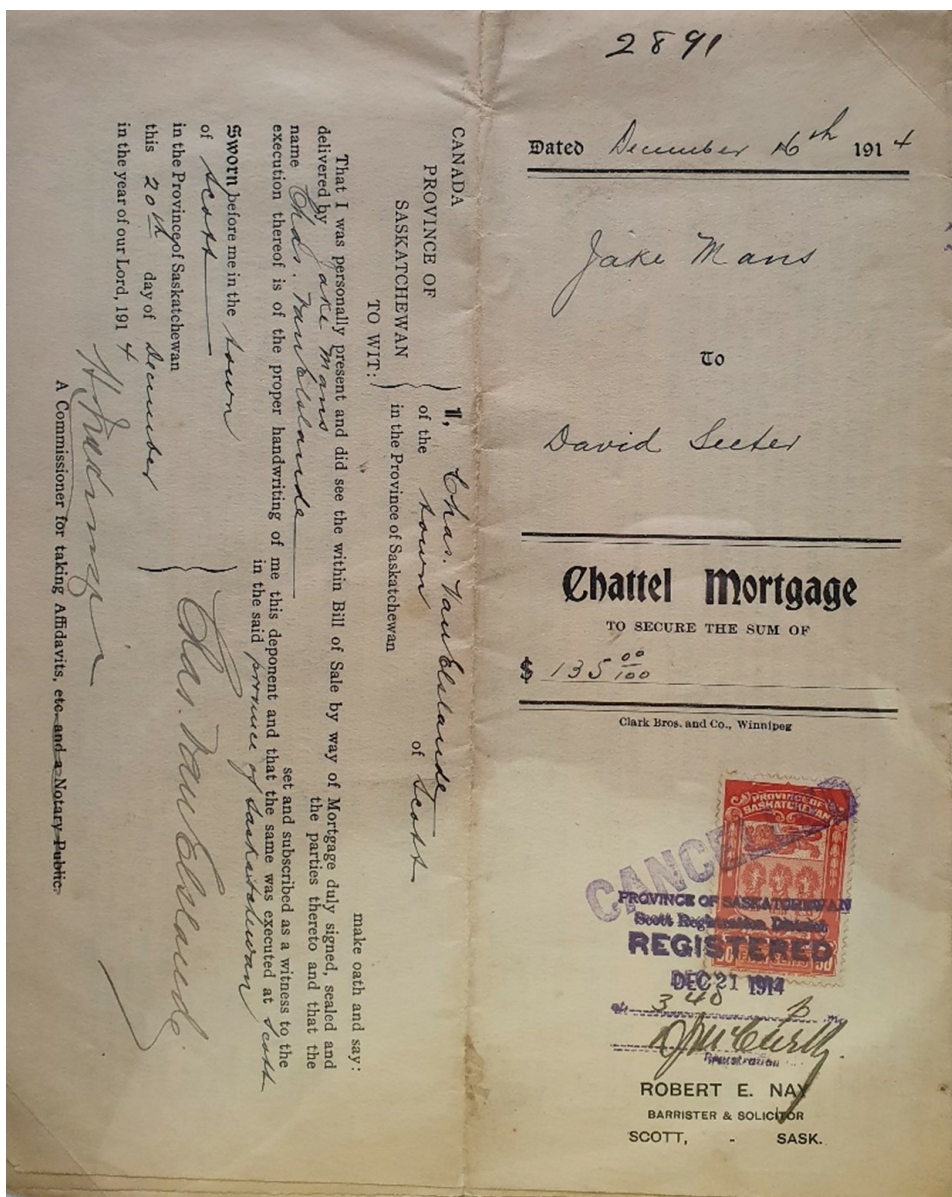 2891
Dated December 16th 1914
Jake Mans
To
David Seeter
Chattel Mortgage
TO SECURE THE SUM OF
$ 135 00/100
Clark Bros. and Co., Winnipeg
PROVINCE OF SASKATCHEWAN
CANCE
PROVINCE OF SASKATCHEWAN
Scott Registration District
REGISTERED
DEC 21 1914
at 3 40 P m
Registration
ROBERT E. NAY
BARRISTER & SOLICITOR
SCOTT, - SASK.
CANADA
PROVINCE OF
SASKATCHEWAN
TO WIT:
I, Chas. VanElslande
of the town of Scott
in the Province of Saskatchewan
make oath and say:
That I was personally present and did see the within Bill of Sale by way of Mortgage duly signed, sealed and
delivered by Jake Mans the parties thereto and that the
name Chas. VanElslande set and subscribed as a witness to the
execution thereof is of the proper handwriting of me this deponent and that the same was executed at Scott
in the said province of Saskatchewan
Sworn before me in the town
of Scott
in the Province of Saskatchewan
this 20th day of December
in the year of our Lord, 1914
Chas. VanElslande
A Commissioner for taking Affidavits, etc. and a Notary Public.